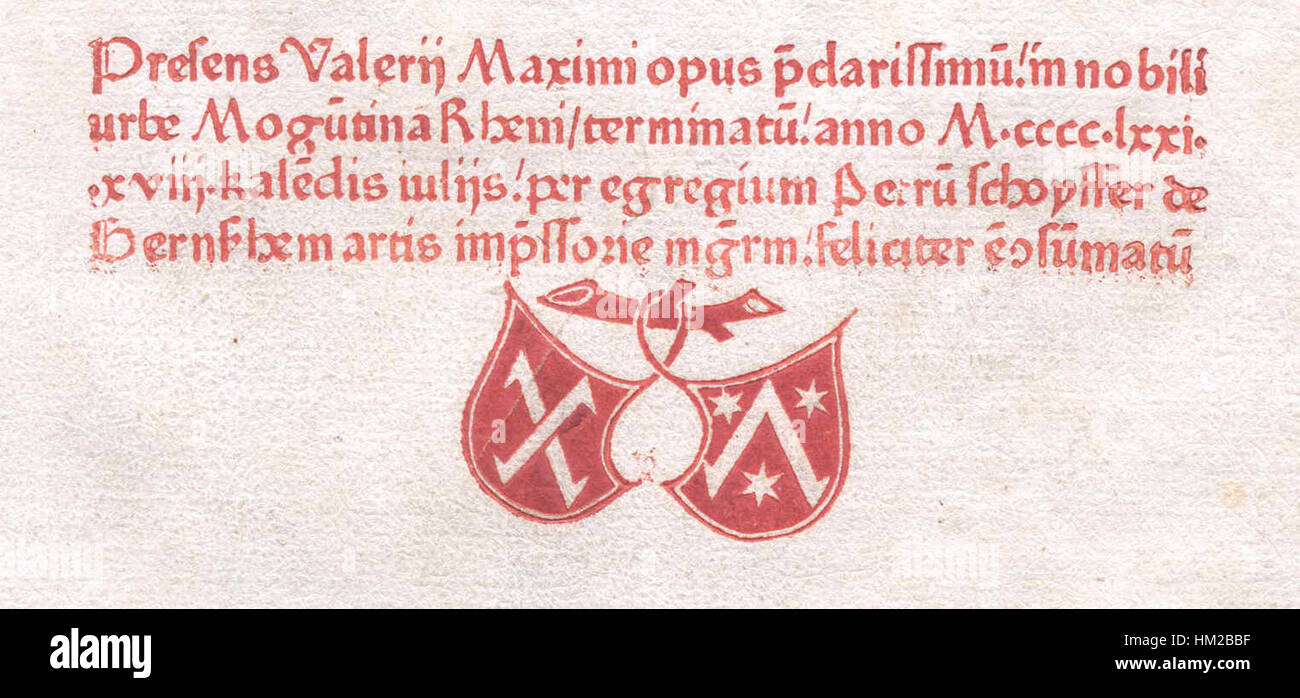 Presens Valerij Maximi opus p̄clarissimū! in nobili
urbe Mogūtina Rheni/terminatū! anno M·cccc·lxxi·
·xviij·kalēdis iulijs!per egregium Petrū schoysfer de
Gernsʒhem artis imp̄ssorie mḡrm!feliciter ē ↄsūmatū
alamy
alamy
alamy
Image ID: HM2BBF
www.alamy.com